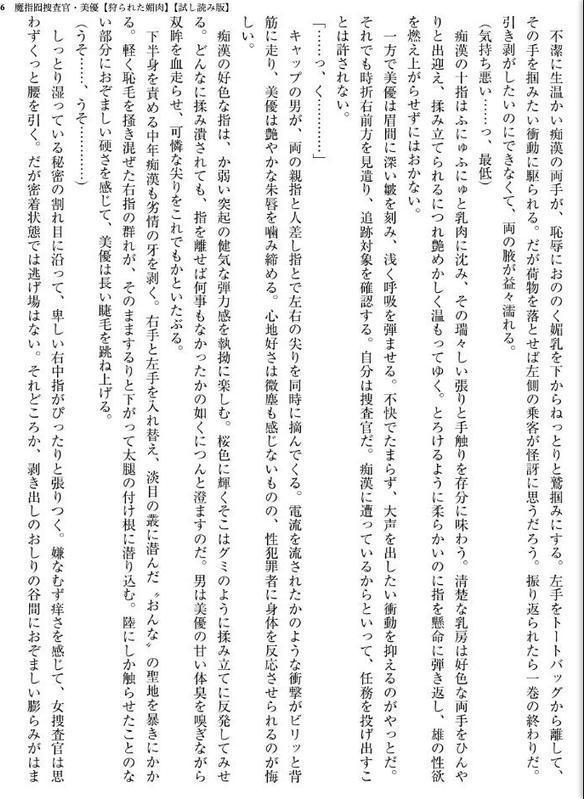 6 魔指囮捜査官・美優【狩られた媚肉】【試し読み版】
　不潔に生温かい痴漢の両手が、恥辱におののく媚乳を下からねっとりと鷲掴みにする。左手をトートバッグから離して、
その手を掴みたい衝動に駆られる。だが荷物を落とせば左側の乗客が怪訝に思うだろう。振り返られたら一巻の終わりだ。
引き剥がしたいのにできなくて、両の腋が益々濡れる。
（気持ち悪い……っ、最低）
　痴漢の十指はふにゅふにゅと乳肉に沈み、その瑞々しい張りと手触りを存分に味わう。清楚な乳房は好色な両手をひんや
りと出迎え、揉み立てられるにつれ艶めかしく温もってゆく。とろけるように柔らかいのに指を懸命に弾き返し、雄の性欲
を燃え上がらせずにはおかない。
　一方で美優は眉間に深い皺を刻み、浅く呼吸を弾ませる。不快でたまらず、大声を出したい衝動を抑えるのがやっとだ。
それでも時折右前方を見遣り、追跡対象を確認する。自分は捜査官だ。痴漢に遭っているからといって、任務を投げ出すこ
とは許されない。
「………っ、く…………」
　キャップの男が、両の親指と人差し指とで左右の尖りを同時に摘んでくる。電流を流されたかのような衝撃がビリッと背
筋に走り、美優は艶やかな朱唇を噛み締める。心地好さは微塵も感じないものの、性犯罪者に身体を反応させられるのが悔
しい。
　痴漢の好色な指は、か弱い突起の健気な弾力感を執拗に楽しむ。桜色に輝くそこはグミのように揉み立てに反発してみせ
る。どんなに揉み潰されても、指を離せば何事もなかったかの如くにつんと澄ますのだ。男は美優の甘い体臭を嗅ぎながら
双眸を血走らせ、可憐な尖りをこれでもかといたぶる。
　下半身を責める中年痴漢も劣情の牙を剥く。右手と左手を入れ替え、淡目の叢に潜んだ〝おんな〟の聖地を暴きにかか
る。軽く恥毛を掻き混ぜた右指の群れが、そのままするりと下がって太腿の付け根に潜り込む。陸にしか触らせたことのな
い部分におぞましい硬さを感じて、美優は長い睫毛を跳ね上げる。
（うそ……、うそ…………）
　しっとり湿っている秘密の割れ目に沿って、卑しい右中指がぴったりと張りつく。嫌なむず痒さを感じて、女捜査官は思
わずくっと腰を引く。だが密着状態では逃げ場はない。それどころか、剥き出しのおしりの谷間におぞましい膨らみがはま